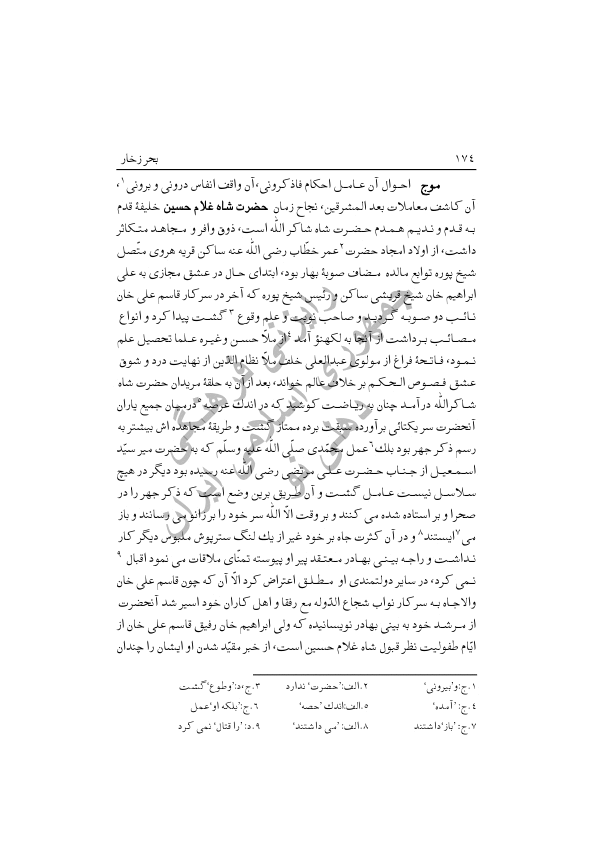 ۱۷٤
بحر زخار
موج احوال آن عامل احکام فاذکرونی، آن واقف انفاس درونی و برونی۱،
آن کاشف معاملات بعد المشرقین، نجاح زمان حضرت شاه غلام حسین خلیفۀ قدم
به قدم و ندیم همدم حضرت شاه شاکر الله است، ذوق وافر و مجاهد متکاثر
داشت، از اولاد امجاد حضرت۲ عمر خطّاب رضی الله عنه ساکن قریه هروی متّصل
شیخ پوره توابع مالده مضاف صوبۀ بهار بود، ابتدای حال در عشق مجازی به علی
ابراهیم خان شیخ قریشی ساکن و رئیس شیخ پوره که آخر در سرکار قاسم علی خان
نائب دو صوبه گردید و صاحب نوبت و علم وقوع۳ گشت پیدا کرد و انواع
مصائب برداشت از آنجا به لکهنؤ آمد٤ از ملاّ حسن و غیره علما تحصیل علم
نمود، فاتحۀ فراغ از مولوی عبدالعلی خلف ملاّ نظام الدّین از نهایت درد و شوق
عشق فصوص الحکم بر خلاف عالم خواند، بعد از آن به حلقۀ مریدان حضرت شاه
شاکرالله در آمد چنان به ریاضت کوشید که در اندك عرصه۵ درمیان جمیع یاران
آنحضرت سر یکتائی برآورده سبقت برده ممتاز گشت و طریقۀ مجاهده اش بیشتر به
رسم ذکر جهر بود بلك۶ عمل محمّدی صلّی الله علیه وسلّم که به حضرت میر سیّد
اسمعیل از جناب حضرت علی مرتضی رضی الله عنه رسیده بود دیگر در هیچ
سلاسل نیست عامل گشت و آن طریق برین وضع است که ذکر جهر را در
صحرا و بر استاده شده می کنند و بر وقت الاّ الله سر خود را بر زانو می رسانند و باز
می۷ ایستند۸ و در آن کثرت جاه بر خود غیر از یك لنگ سترپوش ملبوس دیگر کار
نداشت و راجه بینی بهادر معتقد پیر او پیوسته تمنّای ملاقات می نمود اقبال ۹
نمی کرد، در سایر دولتمندی او مطلق اعتراض کرد الاّ آن که چون قاسم علی خان
والاجاه به سرکار نواب شجاع الدّوله مع رفقا و اهل کاران خود اسیر شد آنحضرت
از مرشد خود به بینی بهادر نویسانیده که ولی ابراهیم خان رفیق قاسم علی خان از
ایّام طفولیت نظر قبول شاه غلام حسین است، از خبر مقیّد شدن او ایشان را چندان
۱. ج: و’بیرونی‘ ۲. الف: ’حضرت‘ ندارد ۳. ج، د: ’وطوع‘ گشت
٤. ج: ’آمده‘ ۵. الف: اندك ’حصه‘ ۶. ج: ’بلکه او‘ عمل
۷. ج: ’باز‘ داشتند ۸. الف: ’می داشتند‘ ۹. د: ’را قتال‘ نمی کرد